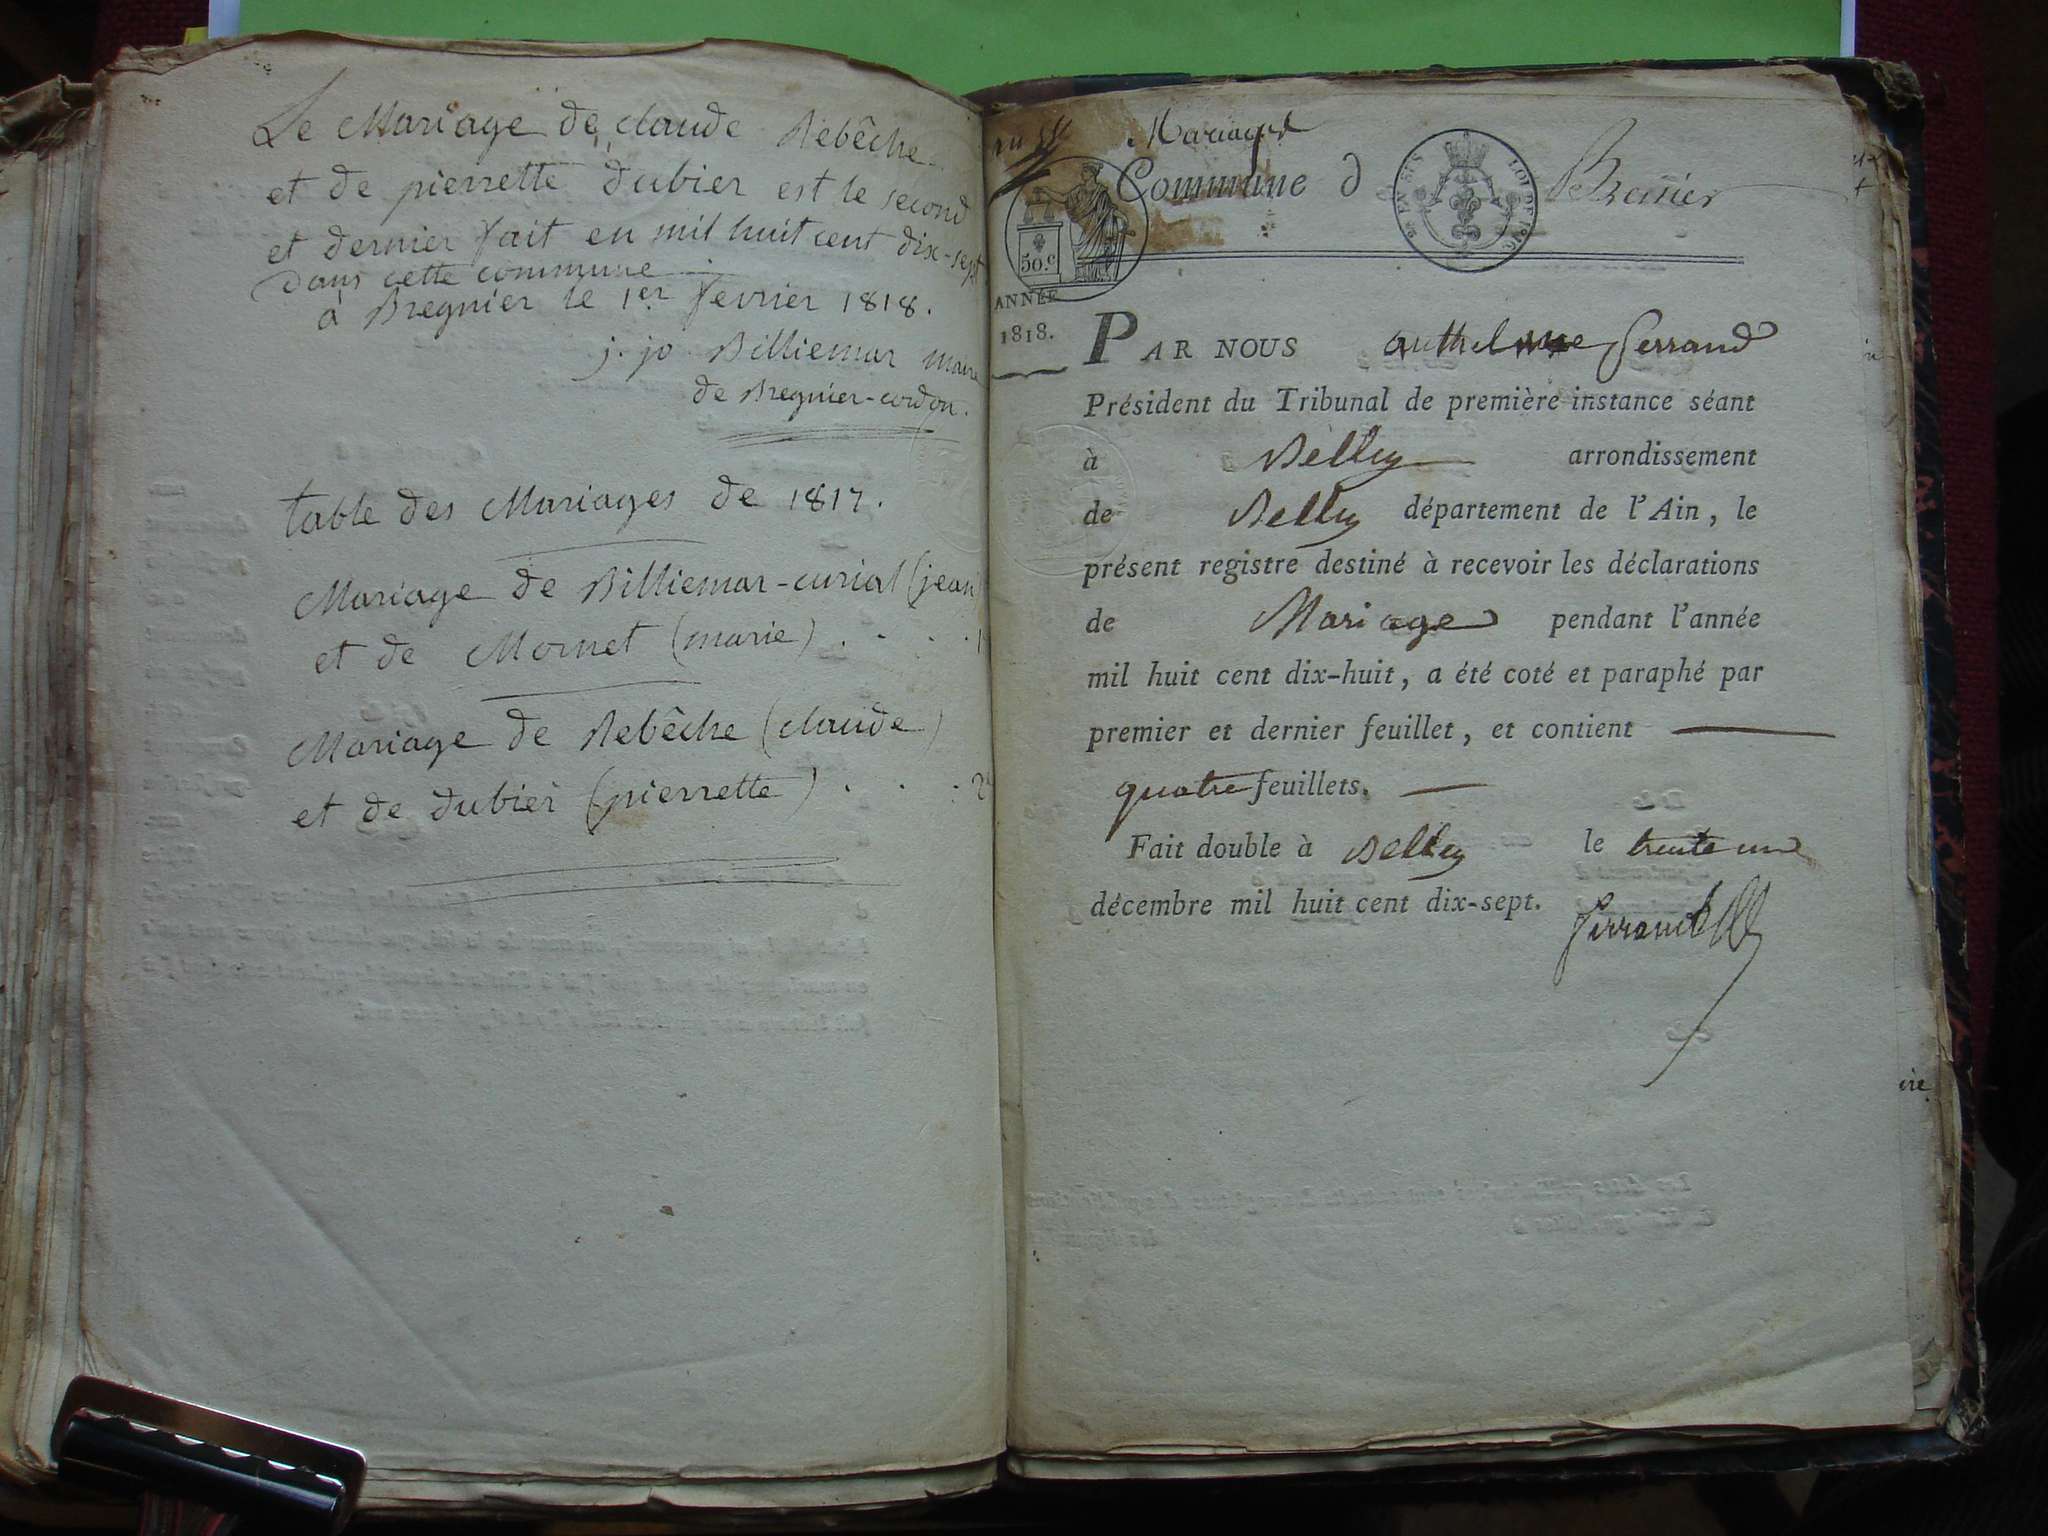 Le Mariage de claude Rebêche
et de pierrette dubier est le second
et dernier fait en mil huit cent dix-sept
dans cette commune
à Bregnier le 1er fevrier 1818.
j. jo Billiemaz maire
de Bregnier-cordon.
table des Mariages de 1817.
Mariage de Billiemaz-curial (jean)
et de Mornet (marie) . . . . 1
Mariage de Rebêche (claude)
et de dubier (pierrette) . . . 2
Mariages
Commune d
50.c
ANNÉE
1818.
PAR NOUS anthelme ferrand
Président du Tribunal de première instance séant
à Belley arrondissement
de Belley département de l'Ain, le
présent registre destiné à recevoir les déclarations
de Mariage pendant l'année
mil huit cent dix-huit, a été coté et paraphé par
premier et dernier feuillet, et contient
quatre feuillets.
Fait double à Belley le trente un
décembre mil huit cent dix-sept.
ferrand